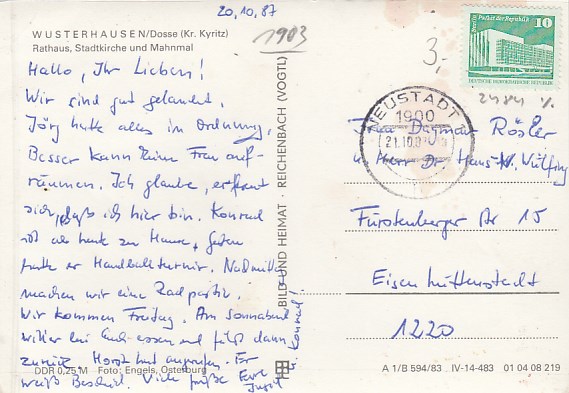 20.10.87
1903
WUSTERHAUSEN/Dosse (Kr. Kyritz)
Rathaus, Stadtkirche und Mahnmal
Hallo, Ihr Lieben!
Wir sind gut gelandet.
Jörg hatte alles in Ordnung,
Besser kann keine Frau auf-
räumen. Ich glaube, er freut
sich, daß ich hier bin. Konrad
ist ab heute zu Hause, gestern
hatte er Handballturnier. Nachmittag
machen wir eine Radpartie.
Wir kommen Freitag. Am Sonnabend
will er bei Euch essen und fährt dann
zurück. Horst hat angerufen. Er
weiß Bescheid. Viele Grüße Eure
u. Konrad!
DDR 0,25 M Foto: Engels, Osterburg
BILD UND HEIMAT · REICHENBACH (VOGTL)
3,-
Palast der Republik
10
DEUTSCHE DEMOKRATISCHE REPUBLIK
2484
NEUSTADT
1900
21.10.8
Frau Dagmar Rösler
u. Herr Dr. Hans-W. Wülfing
Fürstenberger Str 15
Eisenhüttenstadt
1220
A 1/B 594/83 IV-14-483 01 04 08 219